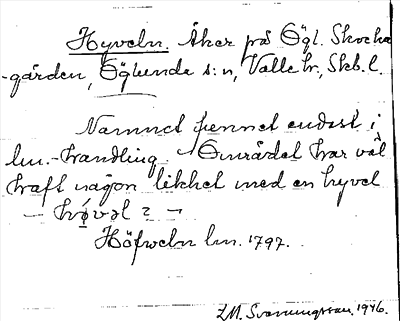 Hyveln. Åker på Ögl. Skocka
-gården, Öglunda s:n, Valle hr, Skb. l.
Namnet finnet endast i
lm.-handling. Området har väl
haft någon likhet med en hyvel
– høvəl 2 –
Höfweln lm. 1797.
L.M. Svanungsson, 1946.